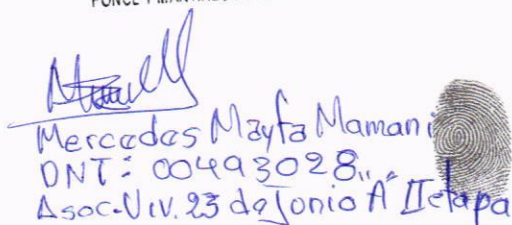 Mercedes Mayta Mamani
DNI: 00493028
Asoc. Viv. 23 de Jonio "A" II etapa